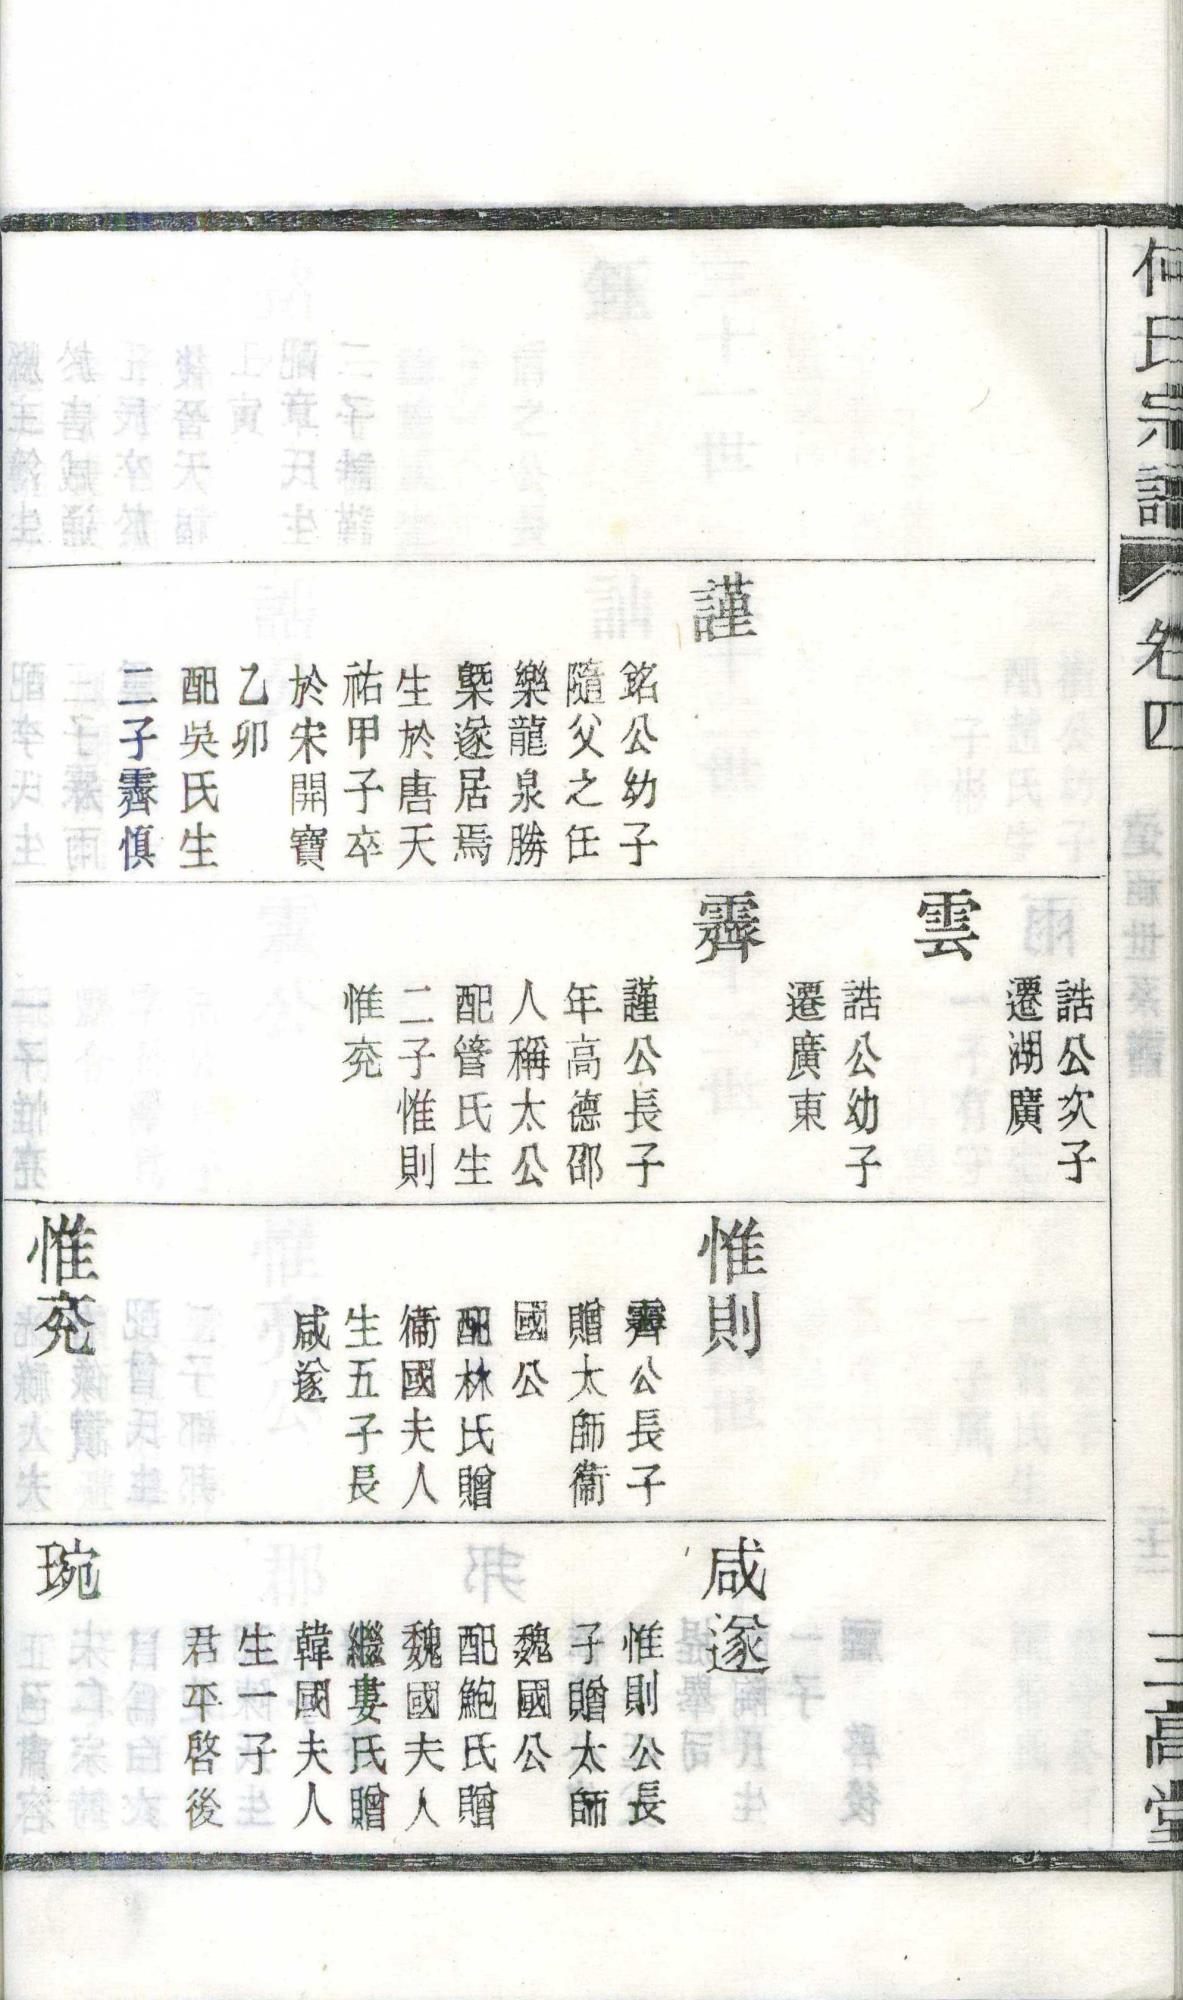 何氏宗譜
卷四
三高堂
謹
銘公幼子
隨父之任
樂龍泉勝
槩遂居焉
生於唐天
祐甲子卒
於宋開寶
乙卯
配吳氏生
二子霽慎
誥公次子
遷湖廣
雲
誥公幼子
遷廣東
霽
謹公長子
年高德邵
人稱太公
配管氏生
二子惟則
惟兖
惟則
霽公長子
贈太師衞
國公
配林氏贈
衞國夫人
生五子長
咸遂
惟兖
咸遂
惟則公長
子贈太師
魏國公
配鮑氏贈
魏國夫人
繼婁氏贈
韓國夫人
生一子
君平啓後
琬